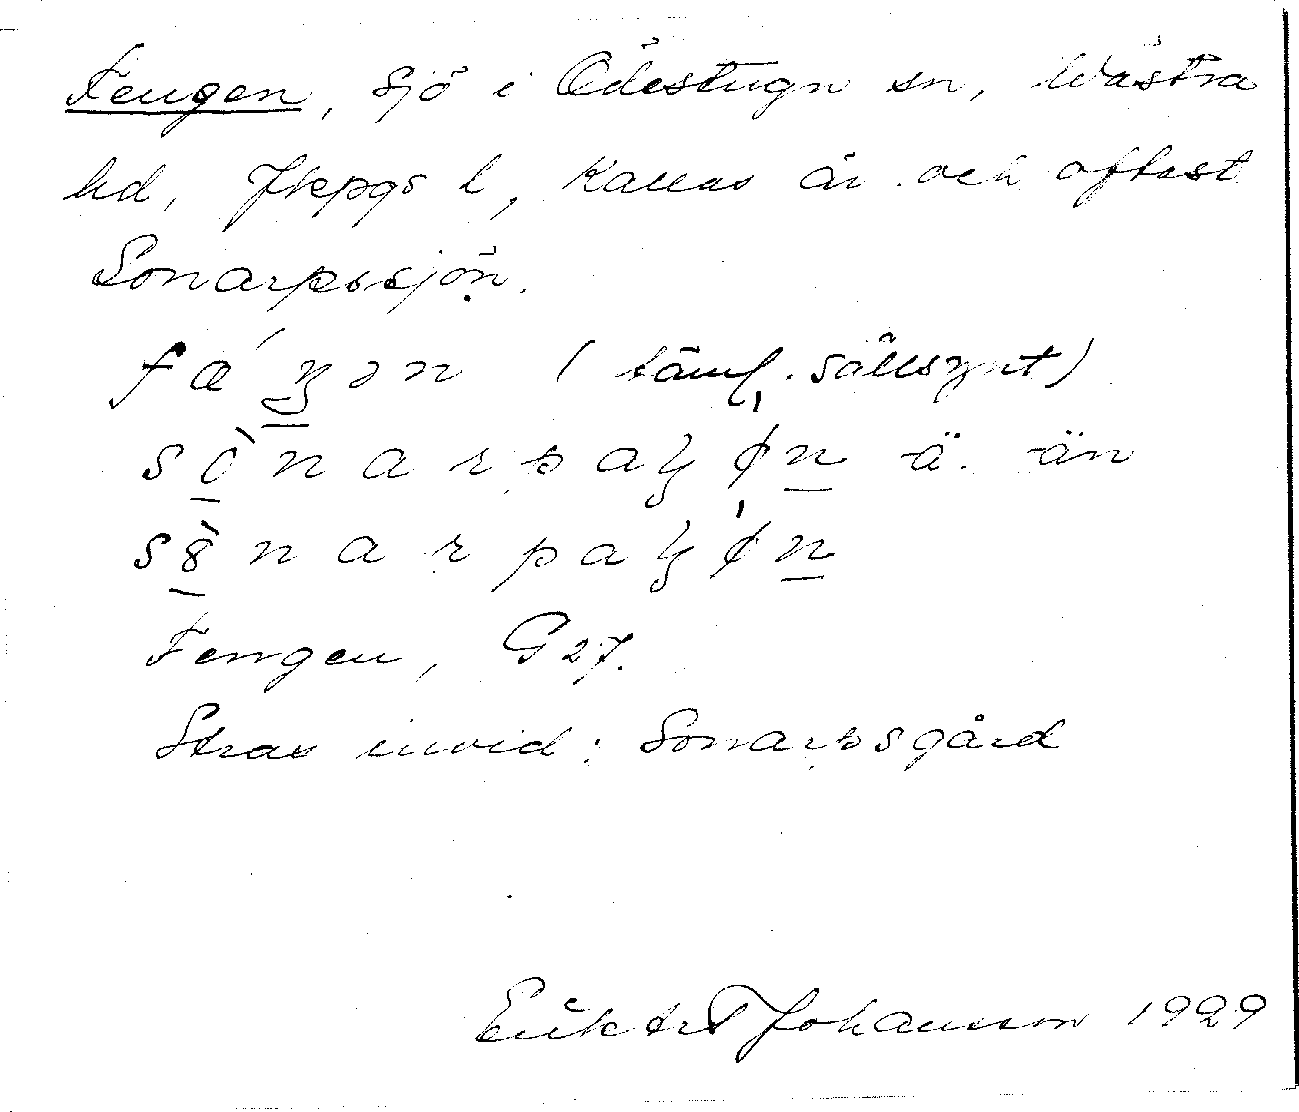 Fengen, sjö i Ödestugn sn, Västra
hd, Jkpgs l, Kallas är och oftast
Sonarpssjön.
fæ´ŋən (täml. sällsynt)
sònarpaɧø̍n ä. än
s8̀narpaɧø̍n
Fengen, G 27.
Strax invid: Sonarpsgård
Johansson 1929